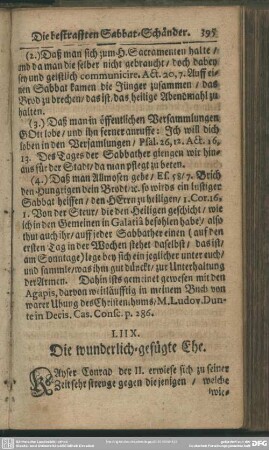 Die bestrafften Sabbat-Schänder. 395
(2.) Daß man sich zum H. Sacramenten halte /
und da man die selber nicht gebraucht / doch dabey
sey und geistlich communicire. Act. 20, 7. Auff ei-
nen Sabbat kamen die Jünger zusammen / das
Brod zu brechen / das ist / das heilige Abendmahl zu
halten.
(3.) Daß man in öffentlichen Versammlungen
GOtt lobe / und ihn ferner anruffe: Ich will dich
loben in den Versamlungen / Psal. 26, 12. Act. 16,
13. Des Tages der Sabbather giengen wir hin-
aus für der Stadt / da man pflegt zu beten.
(4.) Daß man Allmosen gebe / Es. 58/7. Brich
den Hungrigen dein Brodt / ꝛc. so wirds ein lustiger
Sabbat heissen / den HErrn zu heiligen / 1. Cor. 16.
1. Von der Steur / die den Heiligen geschicht / wie
ich in den Gemeinen in Galatiâ befohlen habe / also
thut auch ihr / auff jeder Sabbather einen (auff den
ersten Tag in der Wochen stehet daselbst / das ist /
am Sonntage) lege bey sich ein jeglicher unter euch /
und sammle / was ihm gut dünckt / zur Unterhaltung
der Armen. Dahin ists gemeinet gewesen mit den
Agapis, darvon weitläufftig in meinem Buch von
warer Ubung des Christenthums / M. Ludov. Dun-
te in Decis. Cas. Consc. p. 286.
LIIX.
Die wunderlich-gefügte Ehe.
KAyser Conrad der II. erwiese sich zu seiner
Zeit sehr strenge gegen die jenigen / welche
wie-